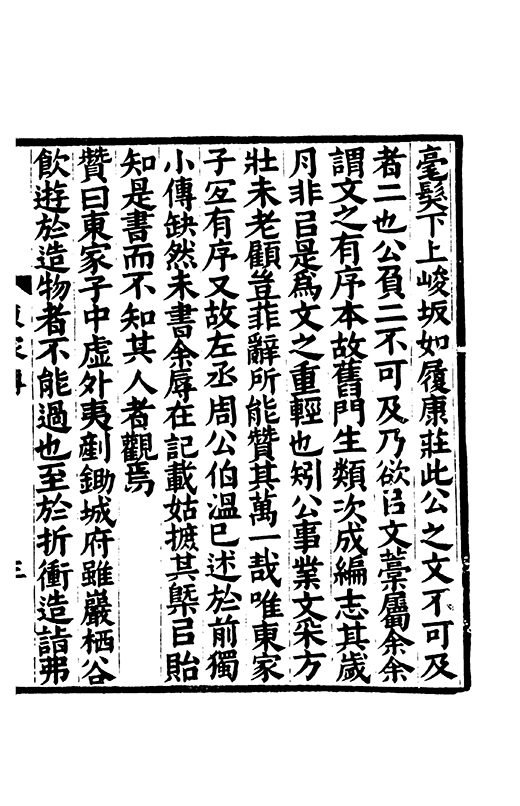 毫髮下上峻坂如履康莊此公之文不可及
者二也公負二不可及乃欲㠯文藁屬余余
謂文之有序本故舊門生類次成編志其歲
月非㠯是爲文之重輕也矧公事業文采方
壯未老顧豈菲辭所能贊其萬一哉唯東家
子室有序又故左丞周公伯溫已述於前獨
小傳缺然未書余辱在記載姑摭其槩㠯貽
知是書而不知其人者觀焉
贊曰東家子中虛外夷剷鋤城府雖巖栖谷
飲遊於造物者不能過也至於折衝造詣弗
三